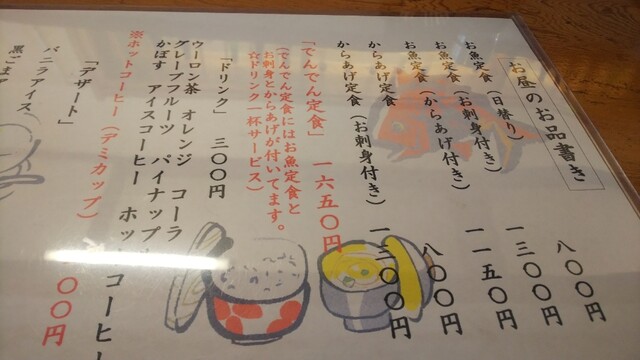 お昼のお品書き
お魚定食（日替り） 八〇〇円
お魚定食（お刺身付き） 一三〇〇円
お魚定食（からあげ付き） 一一五〇円
からあげ定食 八〇〇円
からあげ定食（お刺身付き） 一三〇〇円
「でんでん定食」 一六五〇円
（でんでん定食にはお魚定食と
お刺身とからあげが付いてます。
☆ドリンク一杯サービス）
「ドリンク」 三〇〇円
ウーロン茶 オレンジ コーラ
グレープフルーツ パイナップ
かぼす アイスコーヒー ホットコーヒー
※ホットコーヒー（デミカップ） 〇〇円
「デザート」
バニラアイス
黒ごまア